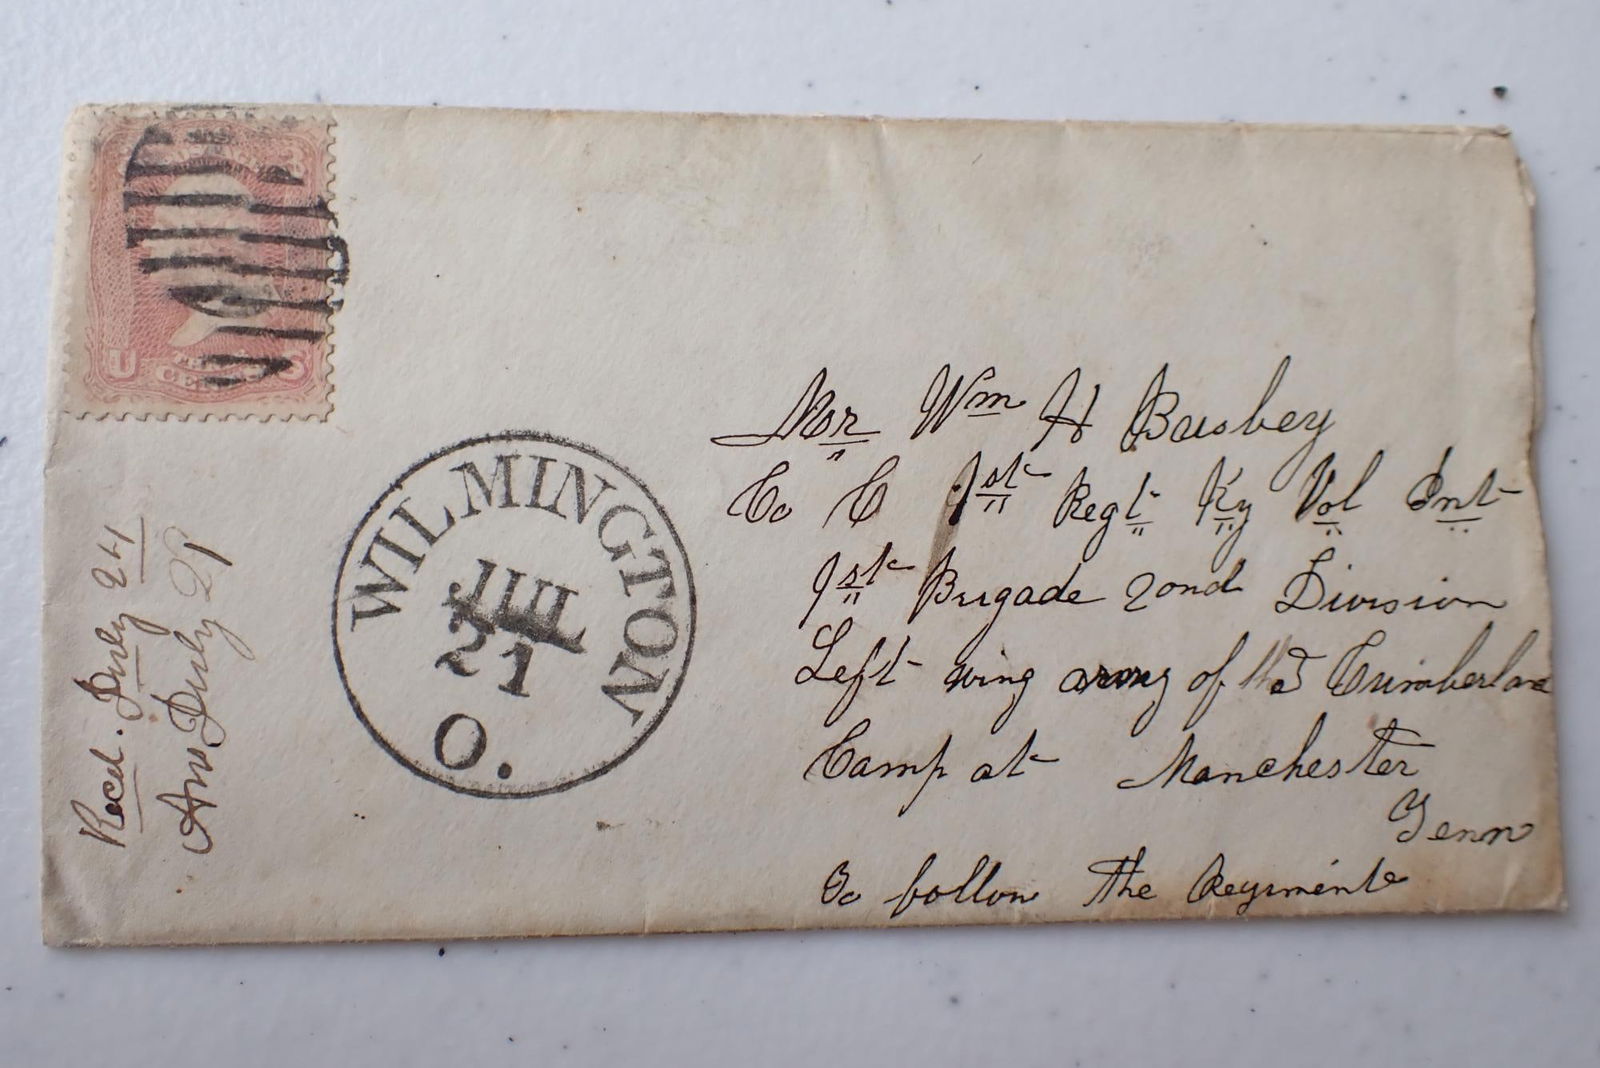 U S
THREE
CENTS
WILMINGTON
JUL
21
O.
Mr Wm H Busbey
Co C 1st Regt Ky Vol Int
1st Brigade 2ond Division
Left wing army of the Cumberland
Camp at Manchester
Tenn
To follow the Regimente
Recd. July 24
Ans July 29